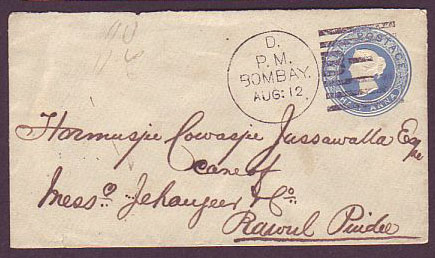 D.
P.M.
BOMBAY.
AUG: 12
POSTAGE
HALF ANNA
Hormusjee Cowasjee Jussawalla Esqre
care of
Messrs. Jehangeer & Co.
Rawul Pindee